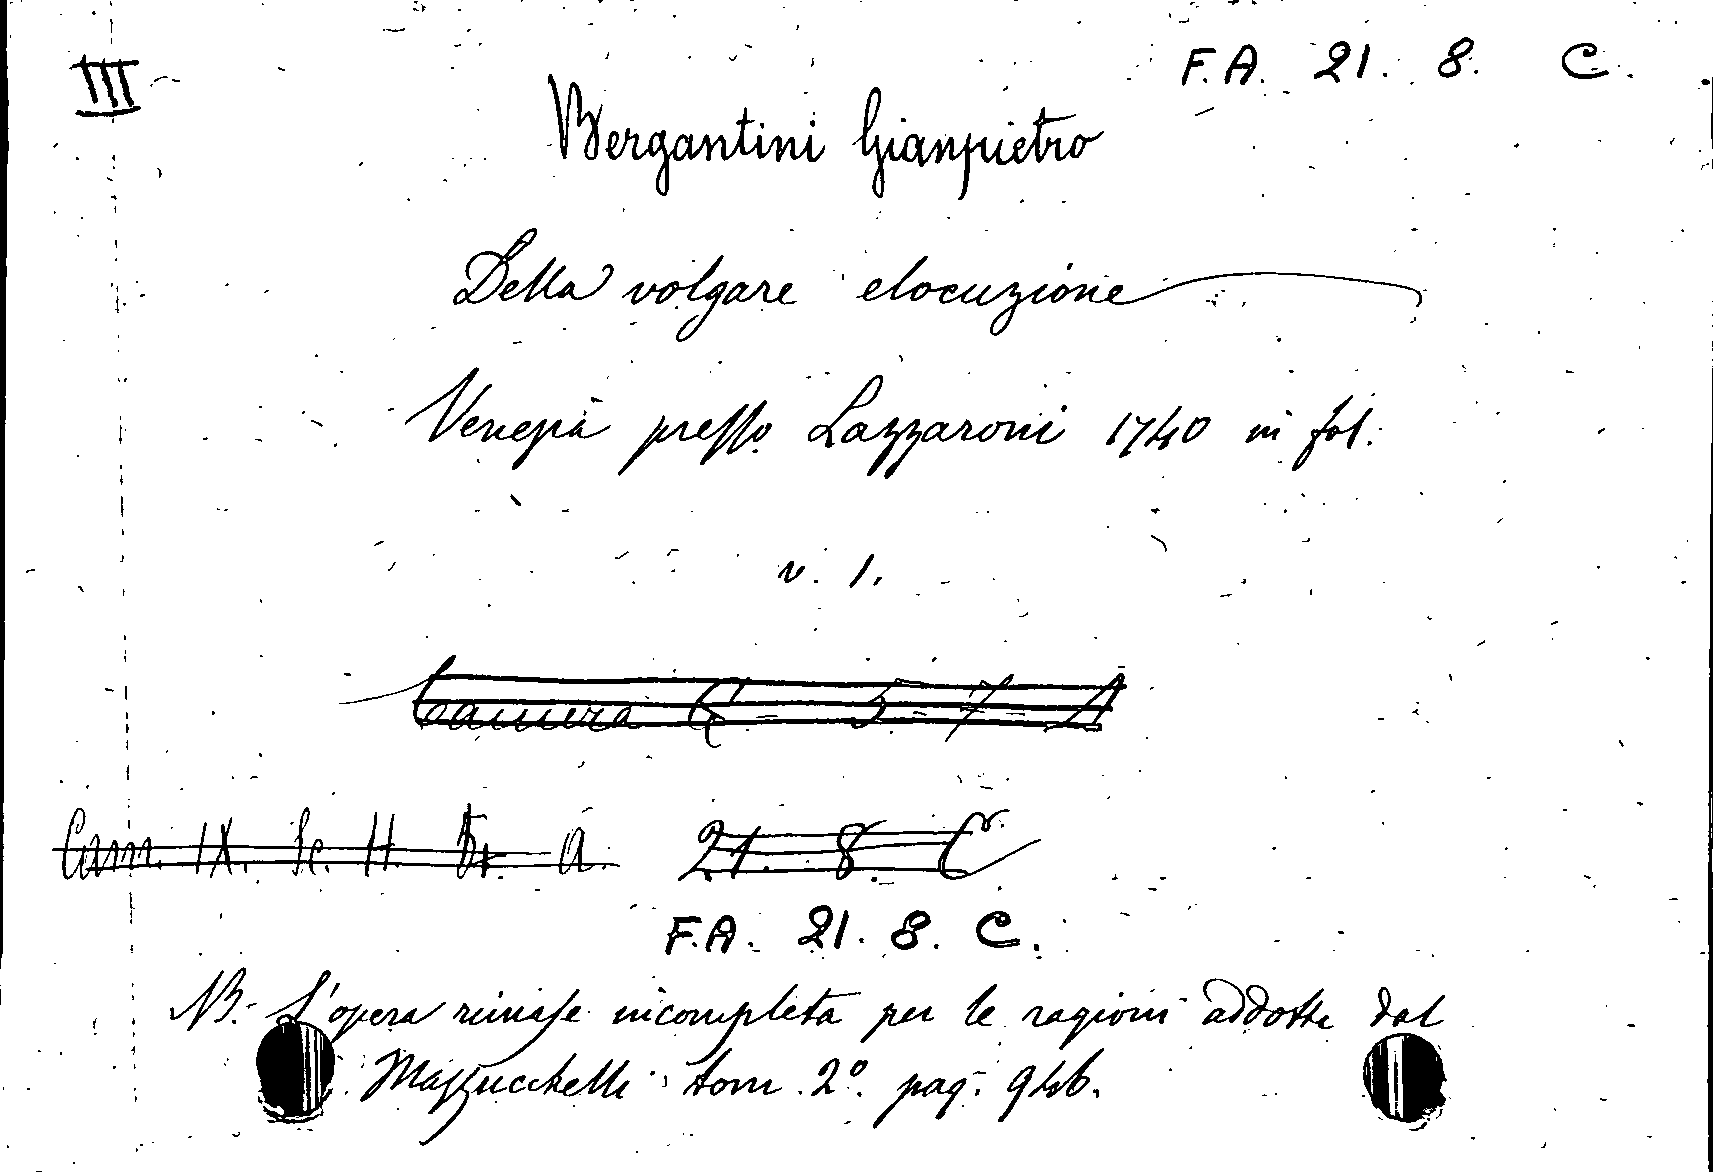 III
F. A. 21. 8. C.
Bergantini Gianpietro
Della volgare elocuzione
Venezia presso Lazzaroni 1740 in fol.
v. 1.
Camera G - 5 - 7 - A
Cam. IX. Sc. H. Fr. A. 21. 8. C.
F. A. 21. 8. C.
NB. L'opera rimase incompleta per le ragioni addotte dal
Mazzucchelli tom. 2º. pag. 946.